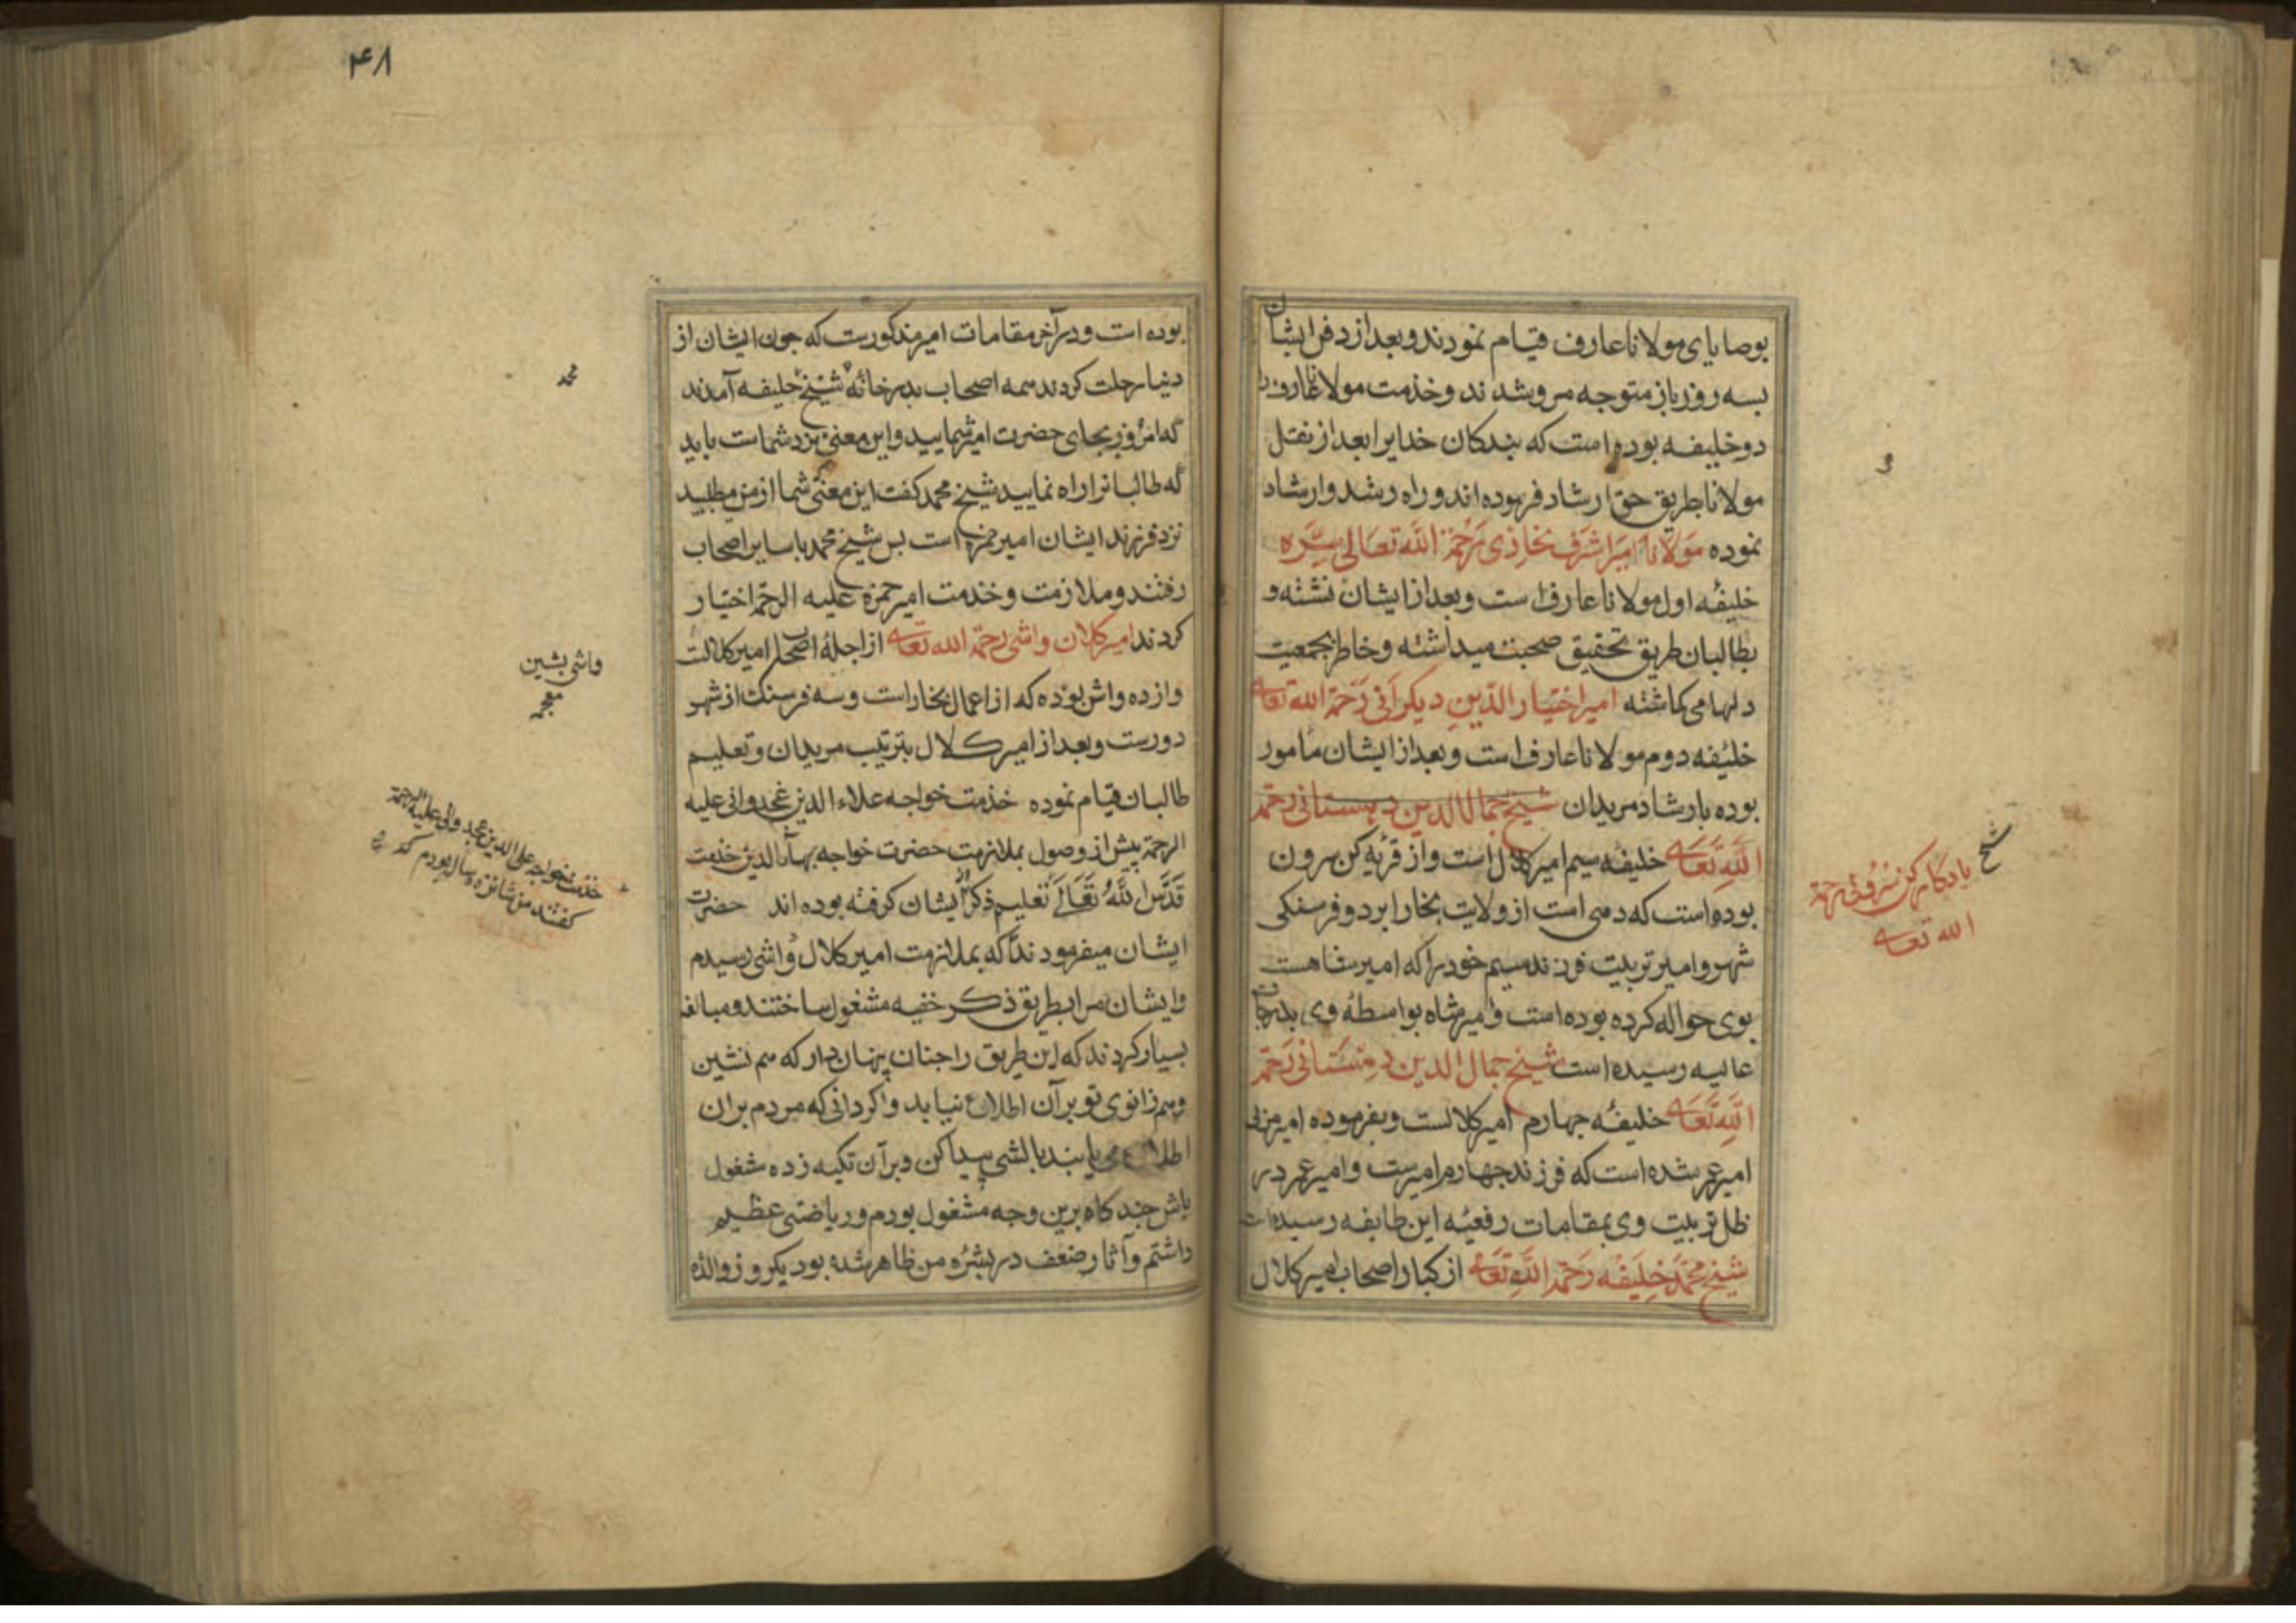 بوصایای مولانا عارف قیام نمودند و بعد از دفن ایشان
بسه روز باز متوجه مرو شدند و خذمت مولانا عارف را
دو خلیفه بوده است که بندکان خدایرا بعد از نقل
مولانا بطریق حق ارشاد فرموده اند و راه رشد و ارشاد
نموده مولانا امیر اشرف بخاری رحمة الله تعالی سره
خلیفهٔ اول مولانا عارف است و بعد از ایشان نشسته و
بطالبان طریق تحقیق صحبت میداشته و خاطر بجمعیت
دلها می کماشته امیر اختیار الدین دیکرانی رحمة الله تعالی
خلیفه دوم مولانا عارف است و بعد از ایشان مامور
بوده بارشاد مریدان شیخ جمال الدین دهستانی رحمه
الله تعالی خلیفه سیم امیر کلال است و از قریهٔ کن سرون
بوده است که دهی است از ولایت بخارا بر دو فرسنکی
شهر و امیر تربیت فرزند سیم خود را که امیر شاهست
بوی حواله کرده بوده است و امیر شاه بواسطهٔ وی بدرجات
عالیه رسیده است شیخ جمال الدین دهستانی رحمه
الله تعالی خلیفهٔ جهارم امیر کلالست و بفرموده امیر مربی
امیر عمر شده است که فرزند جهارم امیرست و امیر عمر در
ظل تربیت وی بمقامات رفیعهٔ این طایفه رسیده است
شیخ محمد خلیفه رحمه الله تعالی از کبار اصحاب امیر کلال
شیخ یادکار کن سرونی رحمة
الله تعالی
۴۸
بوده است و در آخر مقامات امیر مذکورست که جون ایشان از
دنیا رحلت کردند همه اصحاب بدر خانهٔ شیخ خلیفه آمدند
که امروز بجای حضرت امیر شمایید و این معنی نزد شماست باید
که طالبانرا راه نمایید شیخ محمد کفت این معنی شما از من مطلبید
نزد فرزند ایشان امیر حمزه است بس شیخ محمد با سایر اصحاب
رفتند و ملازمت و خذمت امیر حمزه علیه الرحمه اختیار
کردند امیر کلان واشی رحمة الله تعالی از اجلهٔ اصحاب امیر کلالست
و از ده واش بوده که از اعمال بخاراست و سه فرسنک از شهر
دورست و بعد از امیر کلال بترتیب مریدان و تعلیم
طالبان قیام نموده خذمت خواجه علاء الدین غجدوانی علیه
الرحمة پیش از وصول بملازمت حضرت خواجه بهاء الدین خذمت
قدس الله تعالی تعلیم ذکر از ایشان کرفته بوده اند حضرت
ایشان میفرمودند که بملازمت امیر کلال واشی رسیدم
و ایشان مرا بطریق ذکر خفیه مشغول ساختند و مبالغه
بسیار کردند که این طریق را جنان پنهان دار که هم نشین
و هم زانوی تو بر آن اطلاع نیابد و اکر دانی که مردم بران
اطلاع می یابند بالشی پیدا کن و بر آن تکیه زده مشغول
باش جند کاه برین وجه مشغول بودم و ریاضتی عظیم
داشتم و آثار ضعف در بشرهٔ من ظاهر شده بود یکروز والده
محمد
واشی بشین
معجمه
خذمت خواجه علی الدین غجدوانی علیه الرحمة
کفتند من شانزده ساله بودم که